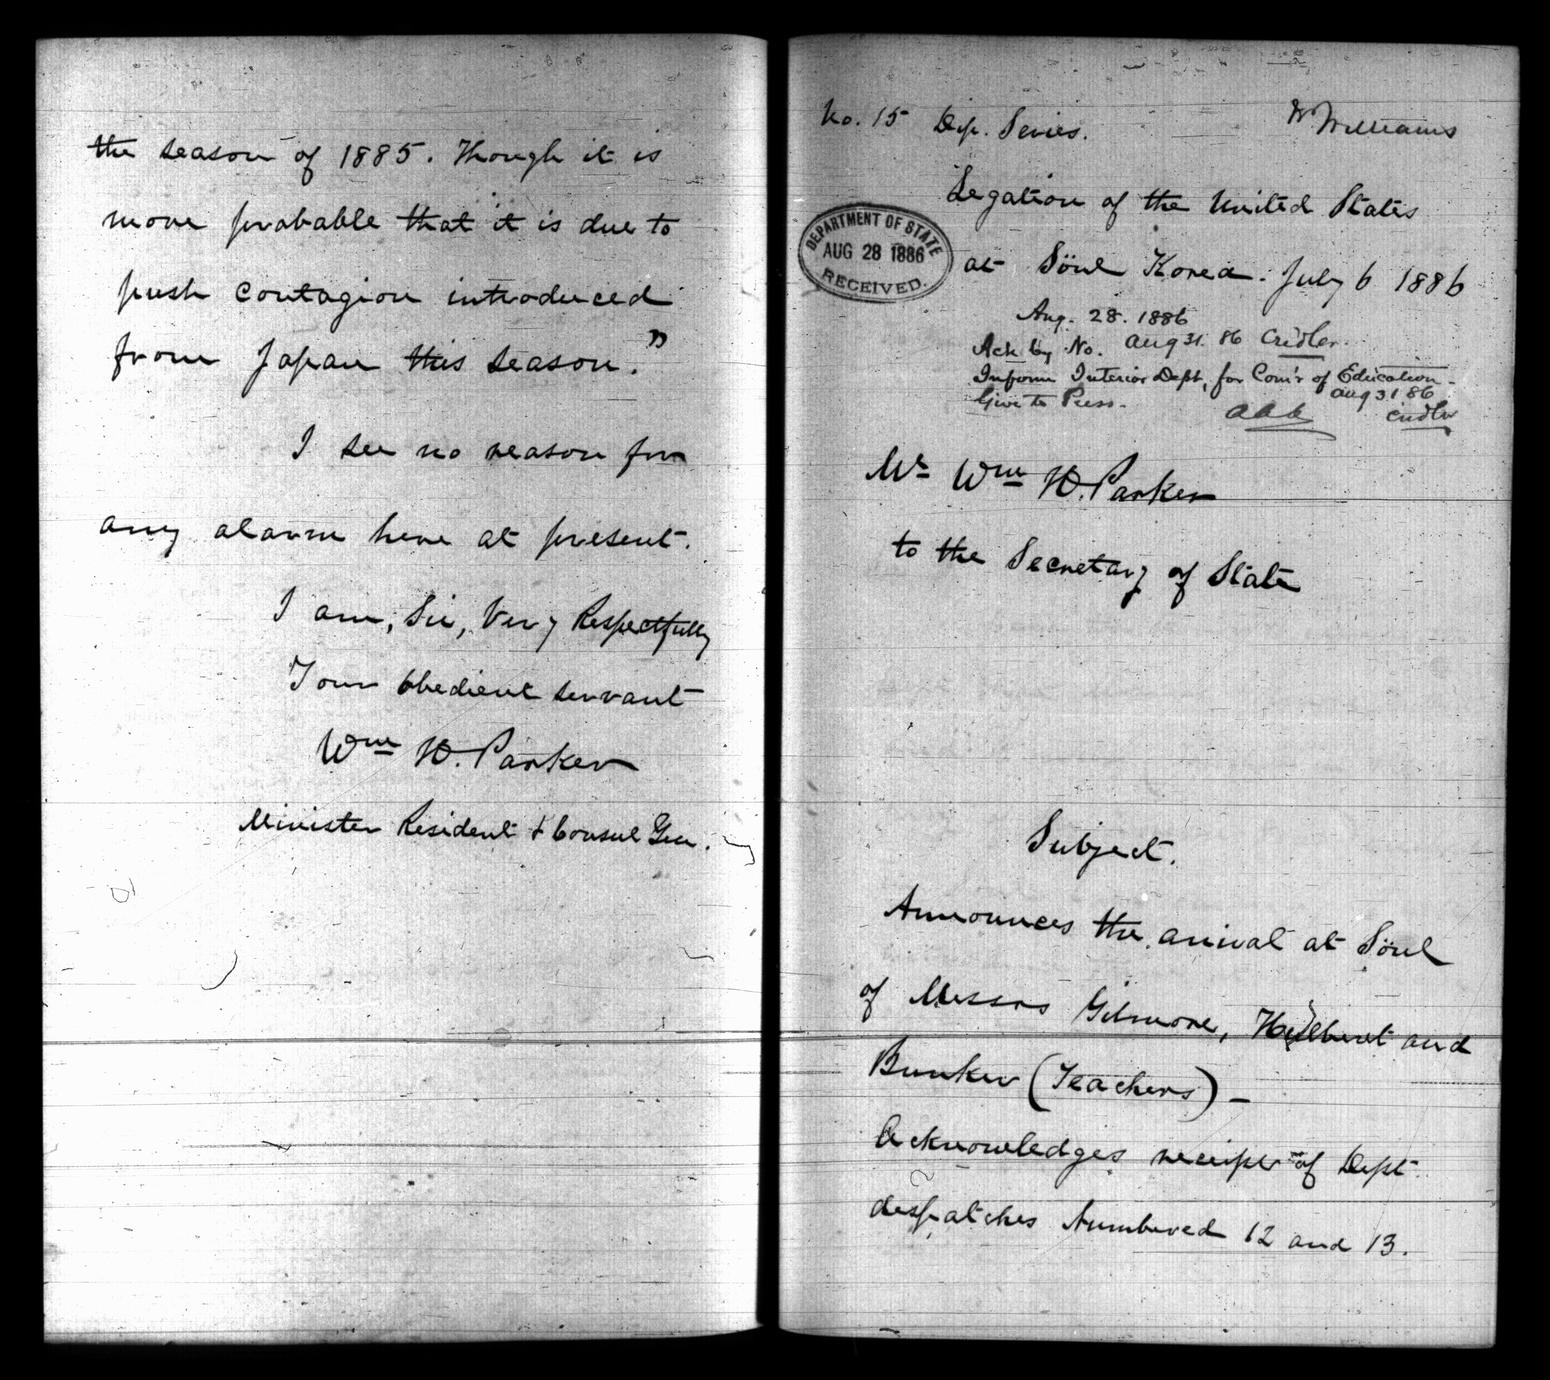 the season of 1885. Though it is
more probable that it is due to
fresh contagion introduced
from Japan this season."
I see no reason for
any alarm here at present.
I am, Sir, Very Respectfully
Your Obedient servant
Wm H. Parker
Minister Resident & Consul Gen.
No. 15 Dip. Series.
Mr Williams
Legation of the United States
at Söul Korea. July 6 1886
DEPARTMENT OF STATE
AUG 28 1886
RECEIVED.
Aug. 28. 1886
Ack by No. Aug 31. 86 Cridler.
Inform Interior Dept, for Com'r of Education.
Aug 31 86
Give to Press. Cridler
Mr Wm H. Parker
to the Secretary of State
Subject.
Announces the arrival at Söul
of Messrs Gilmore, Hulbert and
Bunker (Teachers) –
Acknowledges receipt of Dept
despatches Numbered 12 and 13.